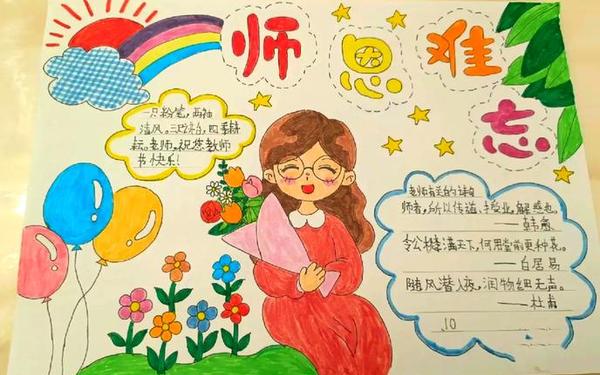 师恩难忘
一只粉笔，两袖
清风。三尺讲台，四季耕
耘。老师，祝您教师
节快乐！
老师有关的诗句
师者，所以传道，授业，解惑也。
——韩愈
令公桃李满天下，何用堂前更种花。
——白居易
随风潜入夜，润物细无声。
——杜甫
10